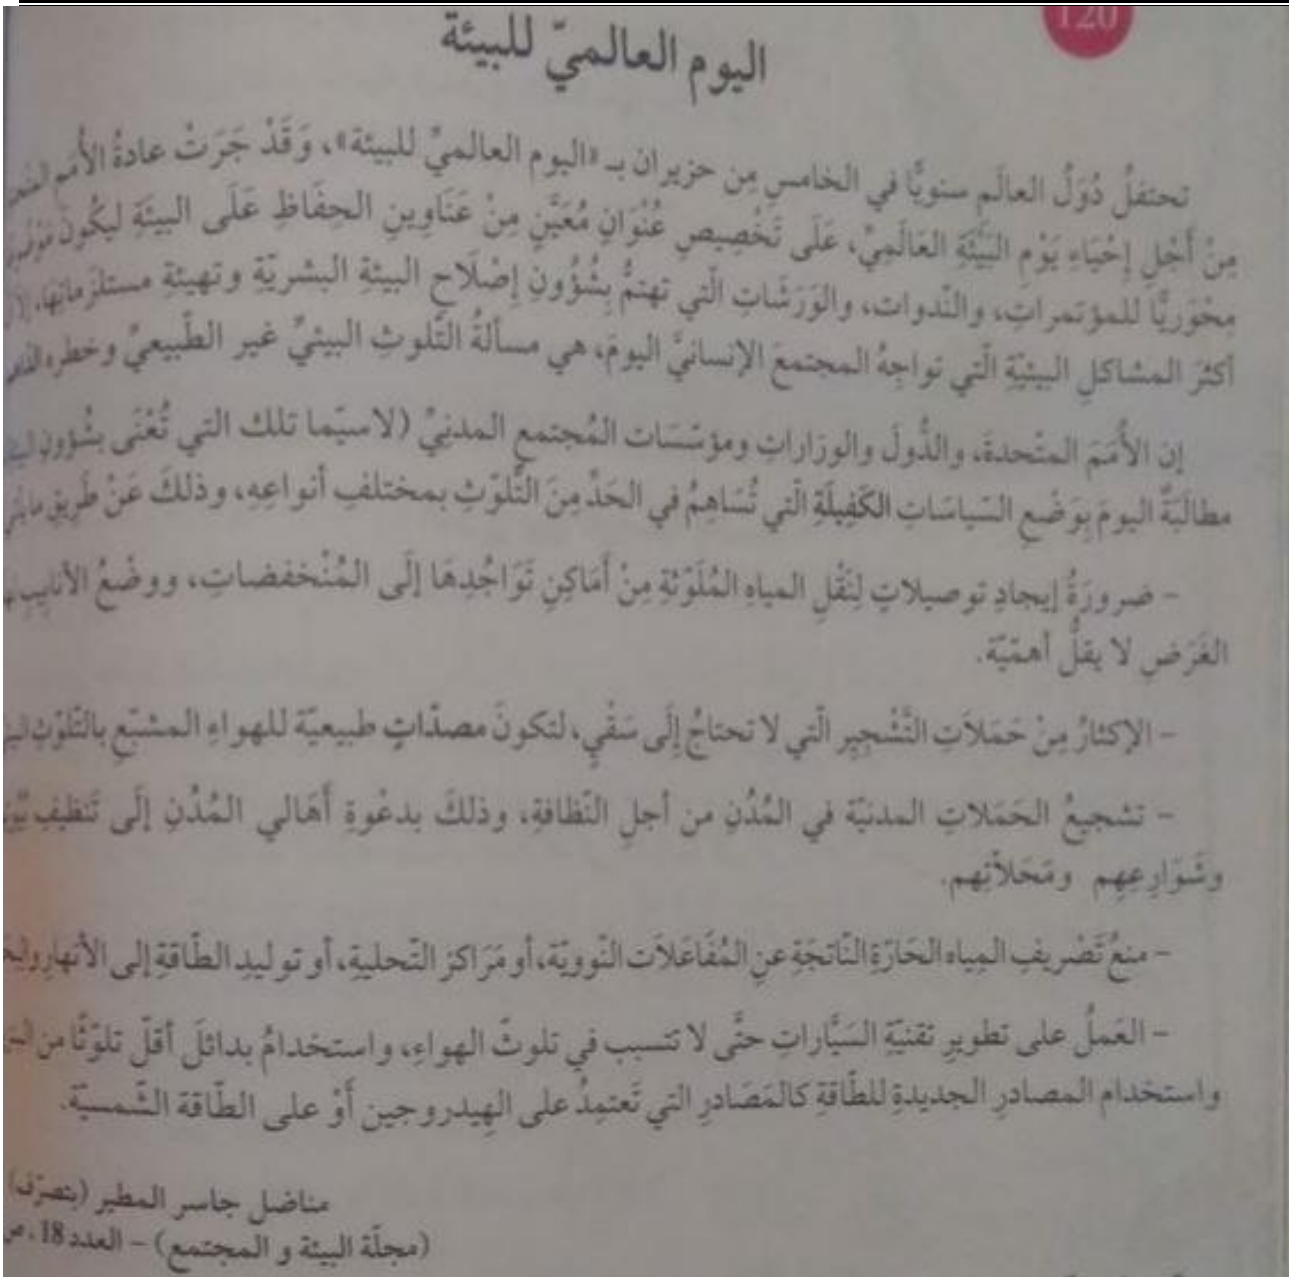 120
اليوم العالميّ للبيئة
تحتفلُ دُوَلُ العالَمِ سنويًّا في الخامسِ مِن حزيران بـ «اليوم العالميِّ للبيئة»، وَقَدْ جَرَتْ عادةُ الأُمَم
مِنْ أَجْلِ إِحْيَاءِ يَوْمِ البَيْئَةِ العَالَمِيِّ، عَلَى تَخْصِيصِ عُنْوَانٍ مُعَيَّنٍ مِنْ عَنَاوِينِ الحِفَاظِ عَلَى البيئَةِ ليكُونَ
مِحْوَرِيًّا للمؤتمراتِ، والنّدوات، والوَرَشَاتِ الّتي تهتمُّ بِشُؤُونِ إِصْلَاحِ البيئةِ البشريّةِ وتهيئةِ مستلزماتِهَا.
أكثرَ المشاكلِ البيئيّةِ الّتي تواجِهُ المجتمعَ الإنسانيَّ اليومَ، هي مسألةُ التّلوثِ البيئيِّ غير الطّبيعيِّ وخطره
إن الأُمَمَ المتّحدةَ، والدُّولَ والوزاراتِ ومؤسّسَات المُجتمعِ المدنيِّ (لاسيّما تلك التي تُعْنَى بشُؤونِ
مطالَبَةٌ اليومَ بِوَضْعِ السّياسَاتِ الكَفِيلَةِ الّتي تُسَاهِمُ في الحَدِّ مِنَ التّلوّثِ بمختلفِ أنواعِهِ، وذلكَ عَنْ طَرِيقِ
- ضرورَةُ إيجادِ توصيلاتٍ لِنَقْلِ المياهِ المُلَوّثةِ مِنْ أَمَاكِنِ تَوَاجُدِهَا إلَى المُنْخفضاتِ، ووضْعُ الأنابيبِ
الغَرَضِ لا يقلُّ أهمّيّة.
- الإكثارُ مِنْ حَمَلاَتِ التَّشْجِيرِ الّتي لا تحتاجُ إلَى سَقْيٍ، لتكونَ مصدّاتٍ طبيعيّة للهواءِ المشبّعِ بالتّلوّثِ
- تشجيعُ الحَمَلاتِ المدنيّة في المُدُنِ من أجلِ النّظافةِ، وذلكَ بدعْوةِ أَهَالي المُدُنِ إلَى تَنظيفِ
وشَوَارِعِهِم ومَحَلاّتِهم.
- منعُ تَصْريفِ المِياه الحَارّةِ النّاتجَةِ عنِ المُفَاعَلاَت النّوويّة، أو مَرَاكزَ التّحليةِ، أو توليدِ الطّاقةِ إلى الأنهارِ
- العَملُ على تطويرِ تقنيّةِ السَيَّاراتِ حتَّى لا تتسبب في تلوثّ الهواءِ، واستخدامُ بدائلَ أقلّ تلوّثًا من
واستخدام المصادرِ الجديدةِ للطّاقةِ كالمَصَادرِ التي تَعتمِدُ على الهِيدروجين أَوْ على الطّاقة الشّمسيّة.
مناضل جاسر المطير (بتصرّف)
(مجلّة البيئة و المجتمع) - العدد 18،